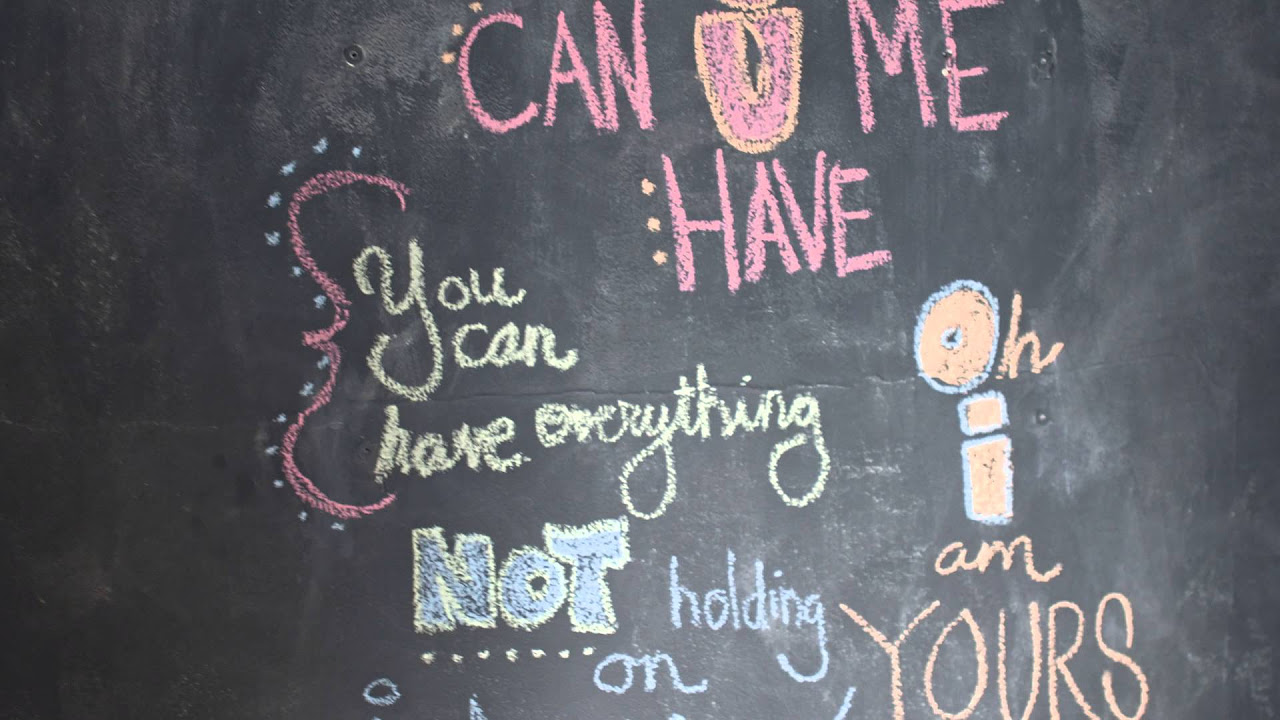 CAN U ME
HAVE
You
can
have everything
NOT holding
on
Oh
i
am
YOURS